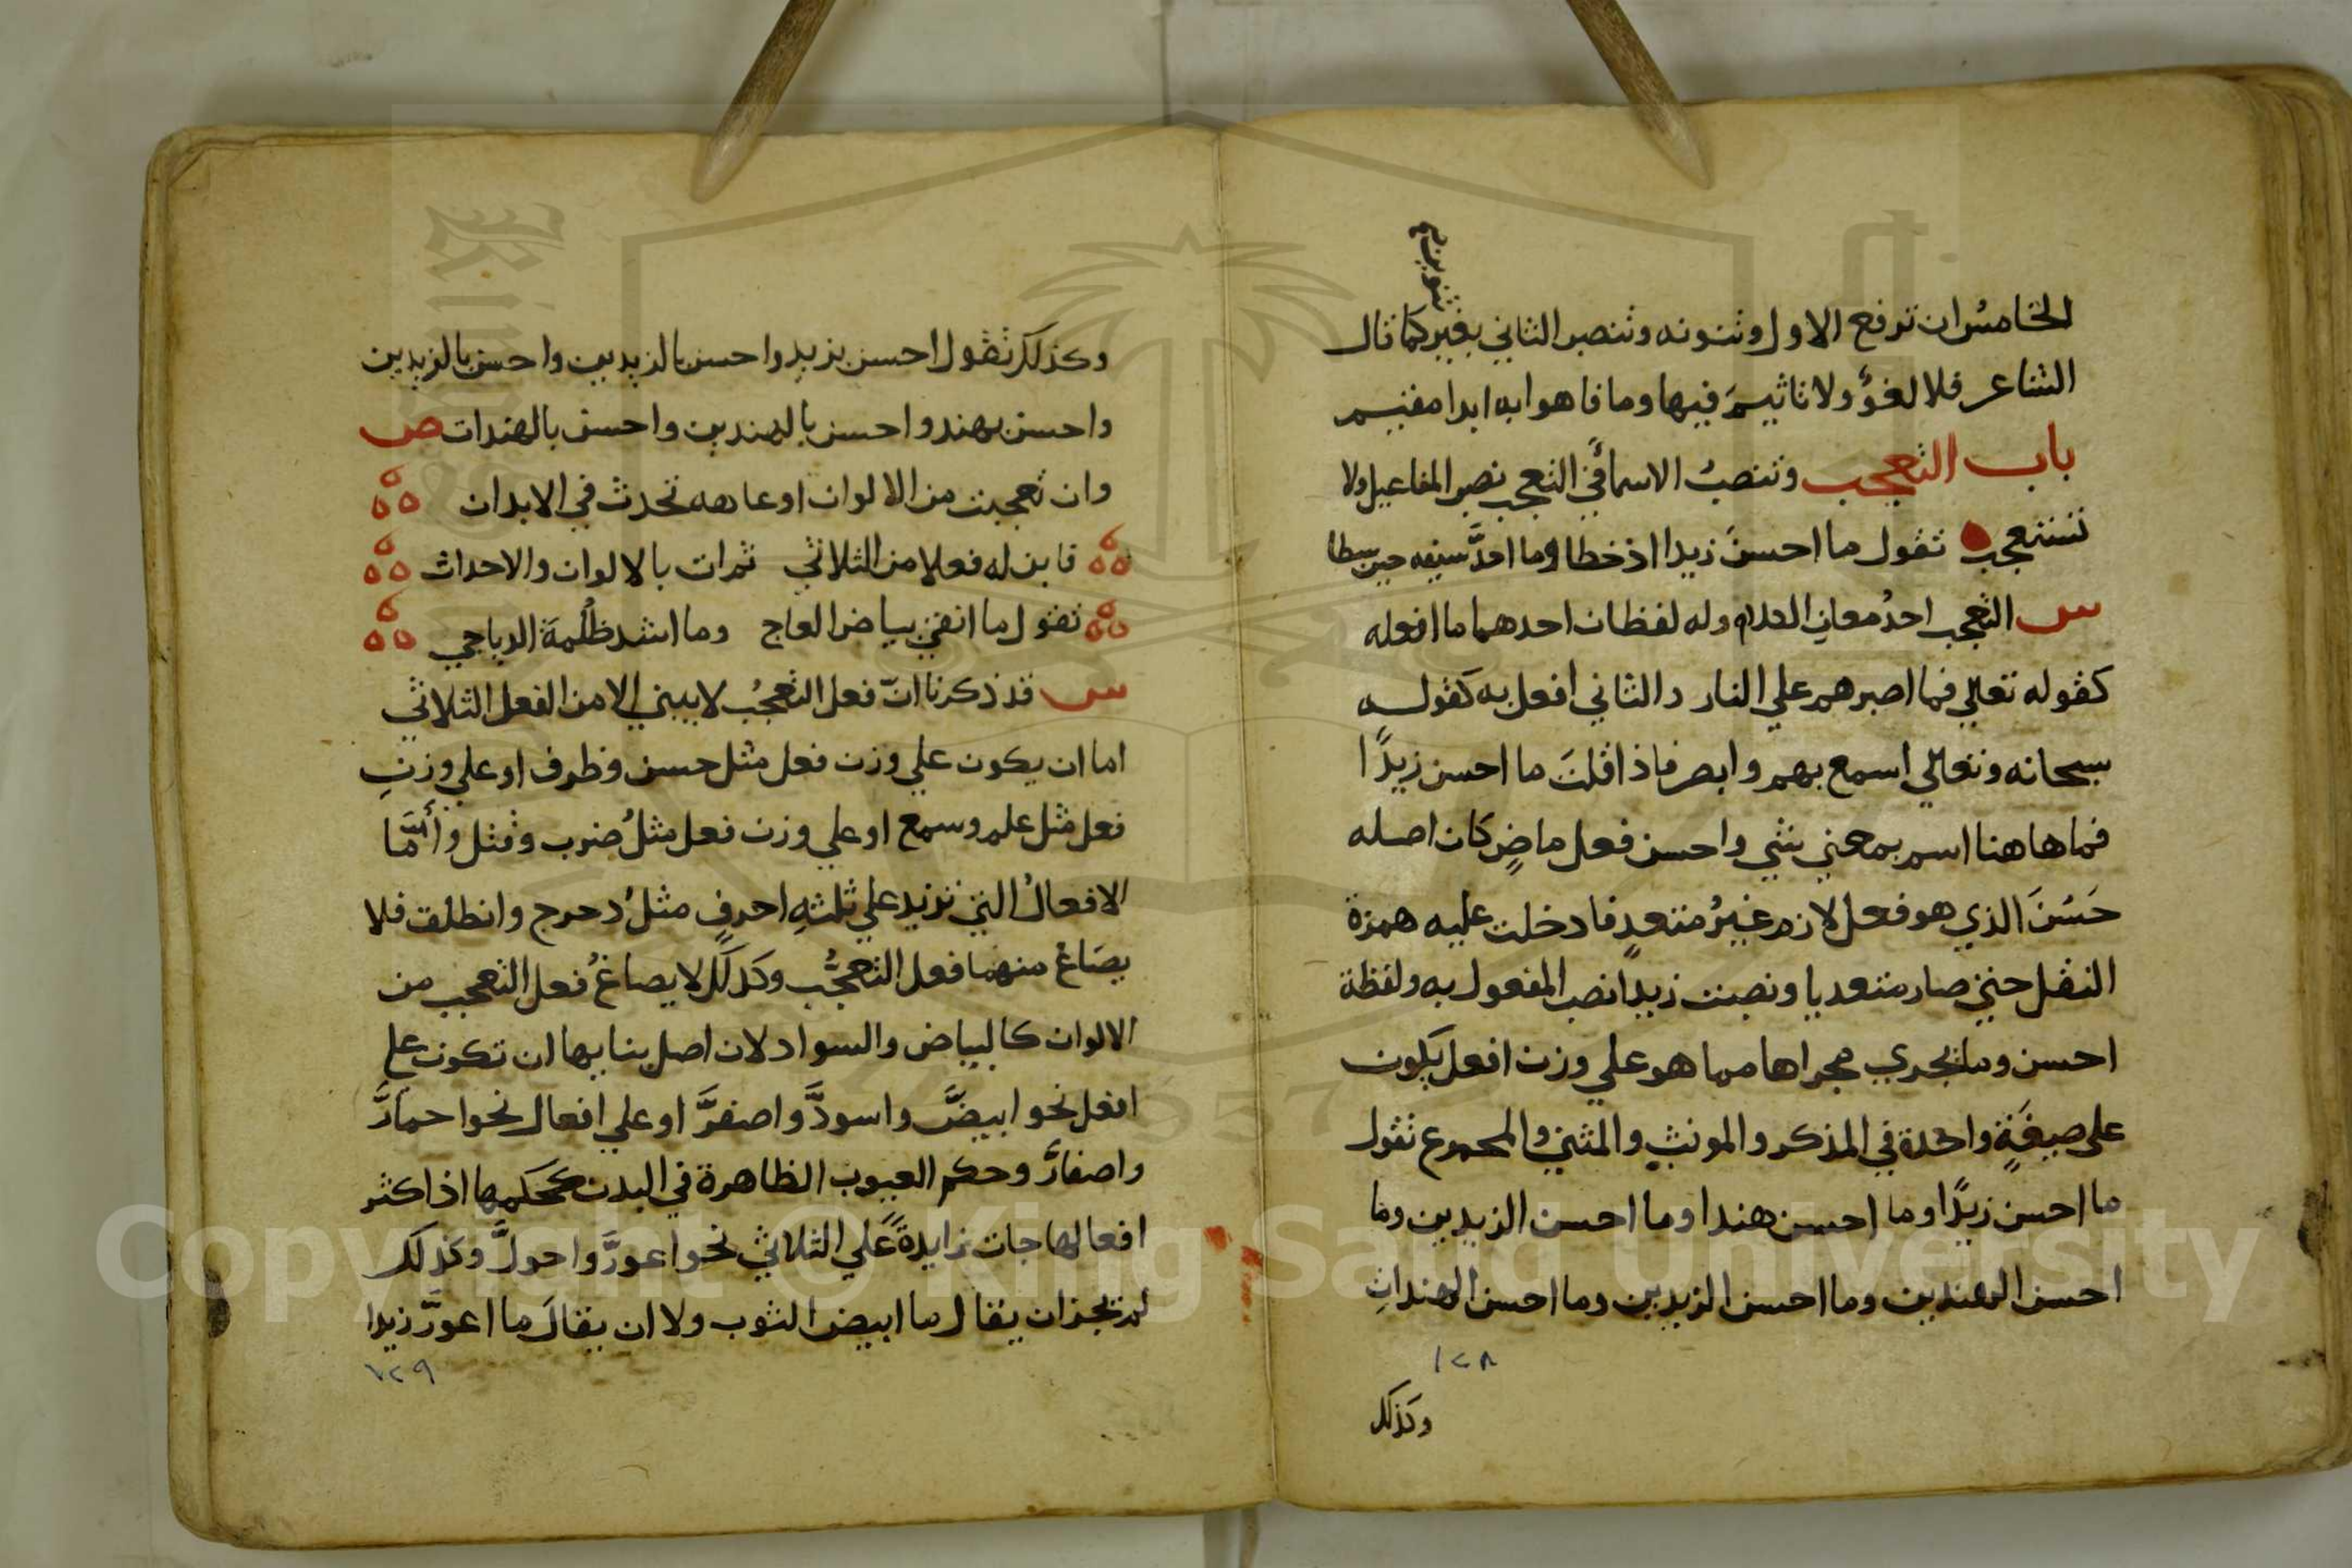 الخامس ان ترفع الاول وتنونه وتنصب الثاني بغير كما قال
تنوين
الشاعر فلا لغوٌ ولا تاثيمَ فيها وما فاهوا به ابدا مقيم
باب التعجب وتنصبُ الاسمأ في التعجب نصب المفاعيل ولا
تستعجب تقول ما احسنَ زيدا اذ خطا وما احدَّ سيفه حين سطا
س التعجب احدُ معاني الكلام وله لفظان احدهما ما افعله
كقوله تعالي فما اصبرهم علي النار والثاني افعل به كقوله
سبحانه وتعالي اسمع بهم وابصر فاذا قلتَ ما احسن زيدًا
فما هاهنا اسم بمعني شي واحسن فعل ماضٍ كان اصله
حَسُنَ الذي هو فعل لازم غيرُ متعدٍ فادخلت عليه همزة
النقل حتي صار متعديا ونصبت زيدًا نصب المفعول به ولفظة
احسن وما يجري مجراها مما هو علي وزن افعل يكون
على صيغةٍ واحدة في المذكر والمونث والمثني والمجموع تقول
ما احسن زيدًا وما احسن هندا وما احسن الزيدين وما
احسن الهندين وما احسن الزيدين وما احسن الهنداتِ
١٢٨
وكذلك
وكذلك تقول احسن بزيدٍ واحسن بالزيدين واحسن بالزيدين
واحسن بهند واحسن بالهندين واحسن بالهندات ص
وان تعجبت من الالوان او عاهه تحدث في الابدان
فابن له فعلا من الثلاثي ثم ات بالالوان والاحداث
تقول ما انقي بياض العاج وما اشد ظُلمَة الدياجي
س قد ذكرنا انّ فعل التعجُب لا يبني الا من الفعل الثلاثي
اما ان يكون علي وزن فعل مثل حسن وظرف او علي وزنِ
فعل مثل علم وسمع او علي وزن فعل مثلُ ضرب وقتل وأمَّا
الافعالُ التي تزيد علي ثلثهِ احرفٍ مثلُ دحرج وانطلق فلا
يصَاغ منهما فعل التعجُّب وكذلك لا يصاغُ فعل التعجب من
الالوان كالبياض والسواد لان اصل بنايها ان تكون علي
افعل نحو ابيضَّ واسودَّ واصفرَّ او علي افعال نحو احمارَّ
واصفارَّ وحكم العيوب الظاهرة في البدن كحكمها اذ اكثر
افعالها جات زايدةً علي الثلاثي نحو اعورَّ واحولَّ وكذلك
لم يجز ان يقال ما ابيض الثوب ولا ان يقالَ ما اعورَّ زيدا
١٢٩